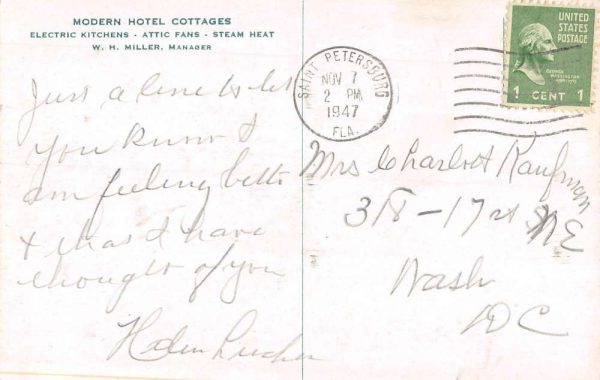 MODERN HOTEL COTTAGES
ELECTRIC KITCHENS - ATTIC FANS - STEAM HEAT
W. H. MILLER, MANAGER
Just a line to let
you know I
am feeling better
& that I have
thought of you
Helen
SAINT PETERSBURG
NOV 7
2 PM
1947
FLA.
UNITED
STATES
POSTAGE
GEORGE
WASHINGTON
1 CENT 1
Mrs Charlott Kaufman
318-17 st NE
Wash
DC